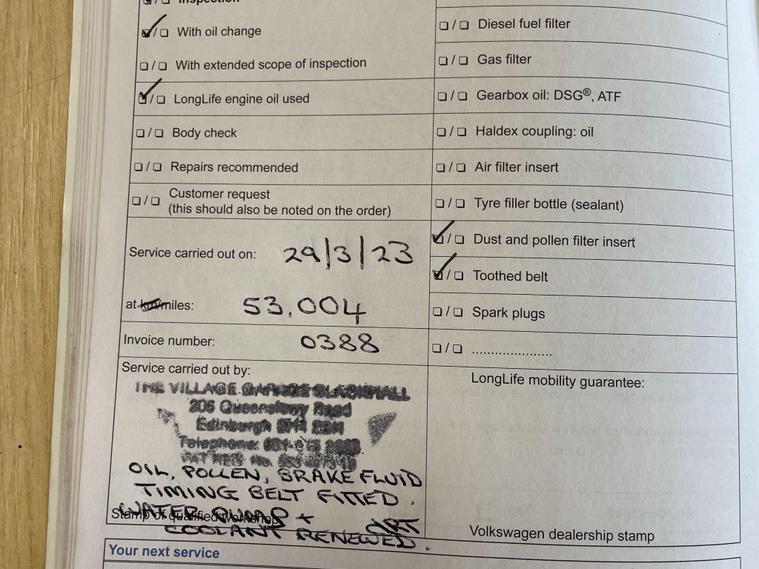 Inspection
With oil change
With extended scope of inspection
LongLife engine oil used
Body check
Repairs recommended
Customer request
(this should also be noted on the order)
Service carried out on: 29/3/23
at km/miles: 53,004
Invoice number: 0388
Service carried out by:
THE VILLAGE GARAGE BLACKHALL
Edinburgh
Telephone:
OIL, POLLEN, BRAKE FLUID
TIMING BELT FITTED.
WATER PUMP +
Stamp of qualified workshop
COOLANT RENEWED.
Diesel fuel filter
Gas filter
Gearbox oil: DSG®, ATF
Haldex coupling: oil
Air filter insert
Tyre filler bottle (sealant)
Dust and pollen filter insert
Toothed belt
Spark plugs
.....................
LongLife mobility guarantee:
Volkswagen dealership stamp
Your next service